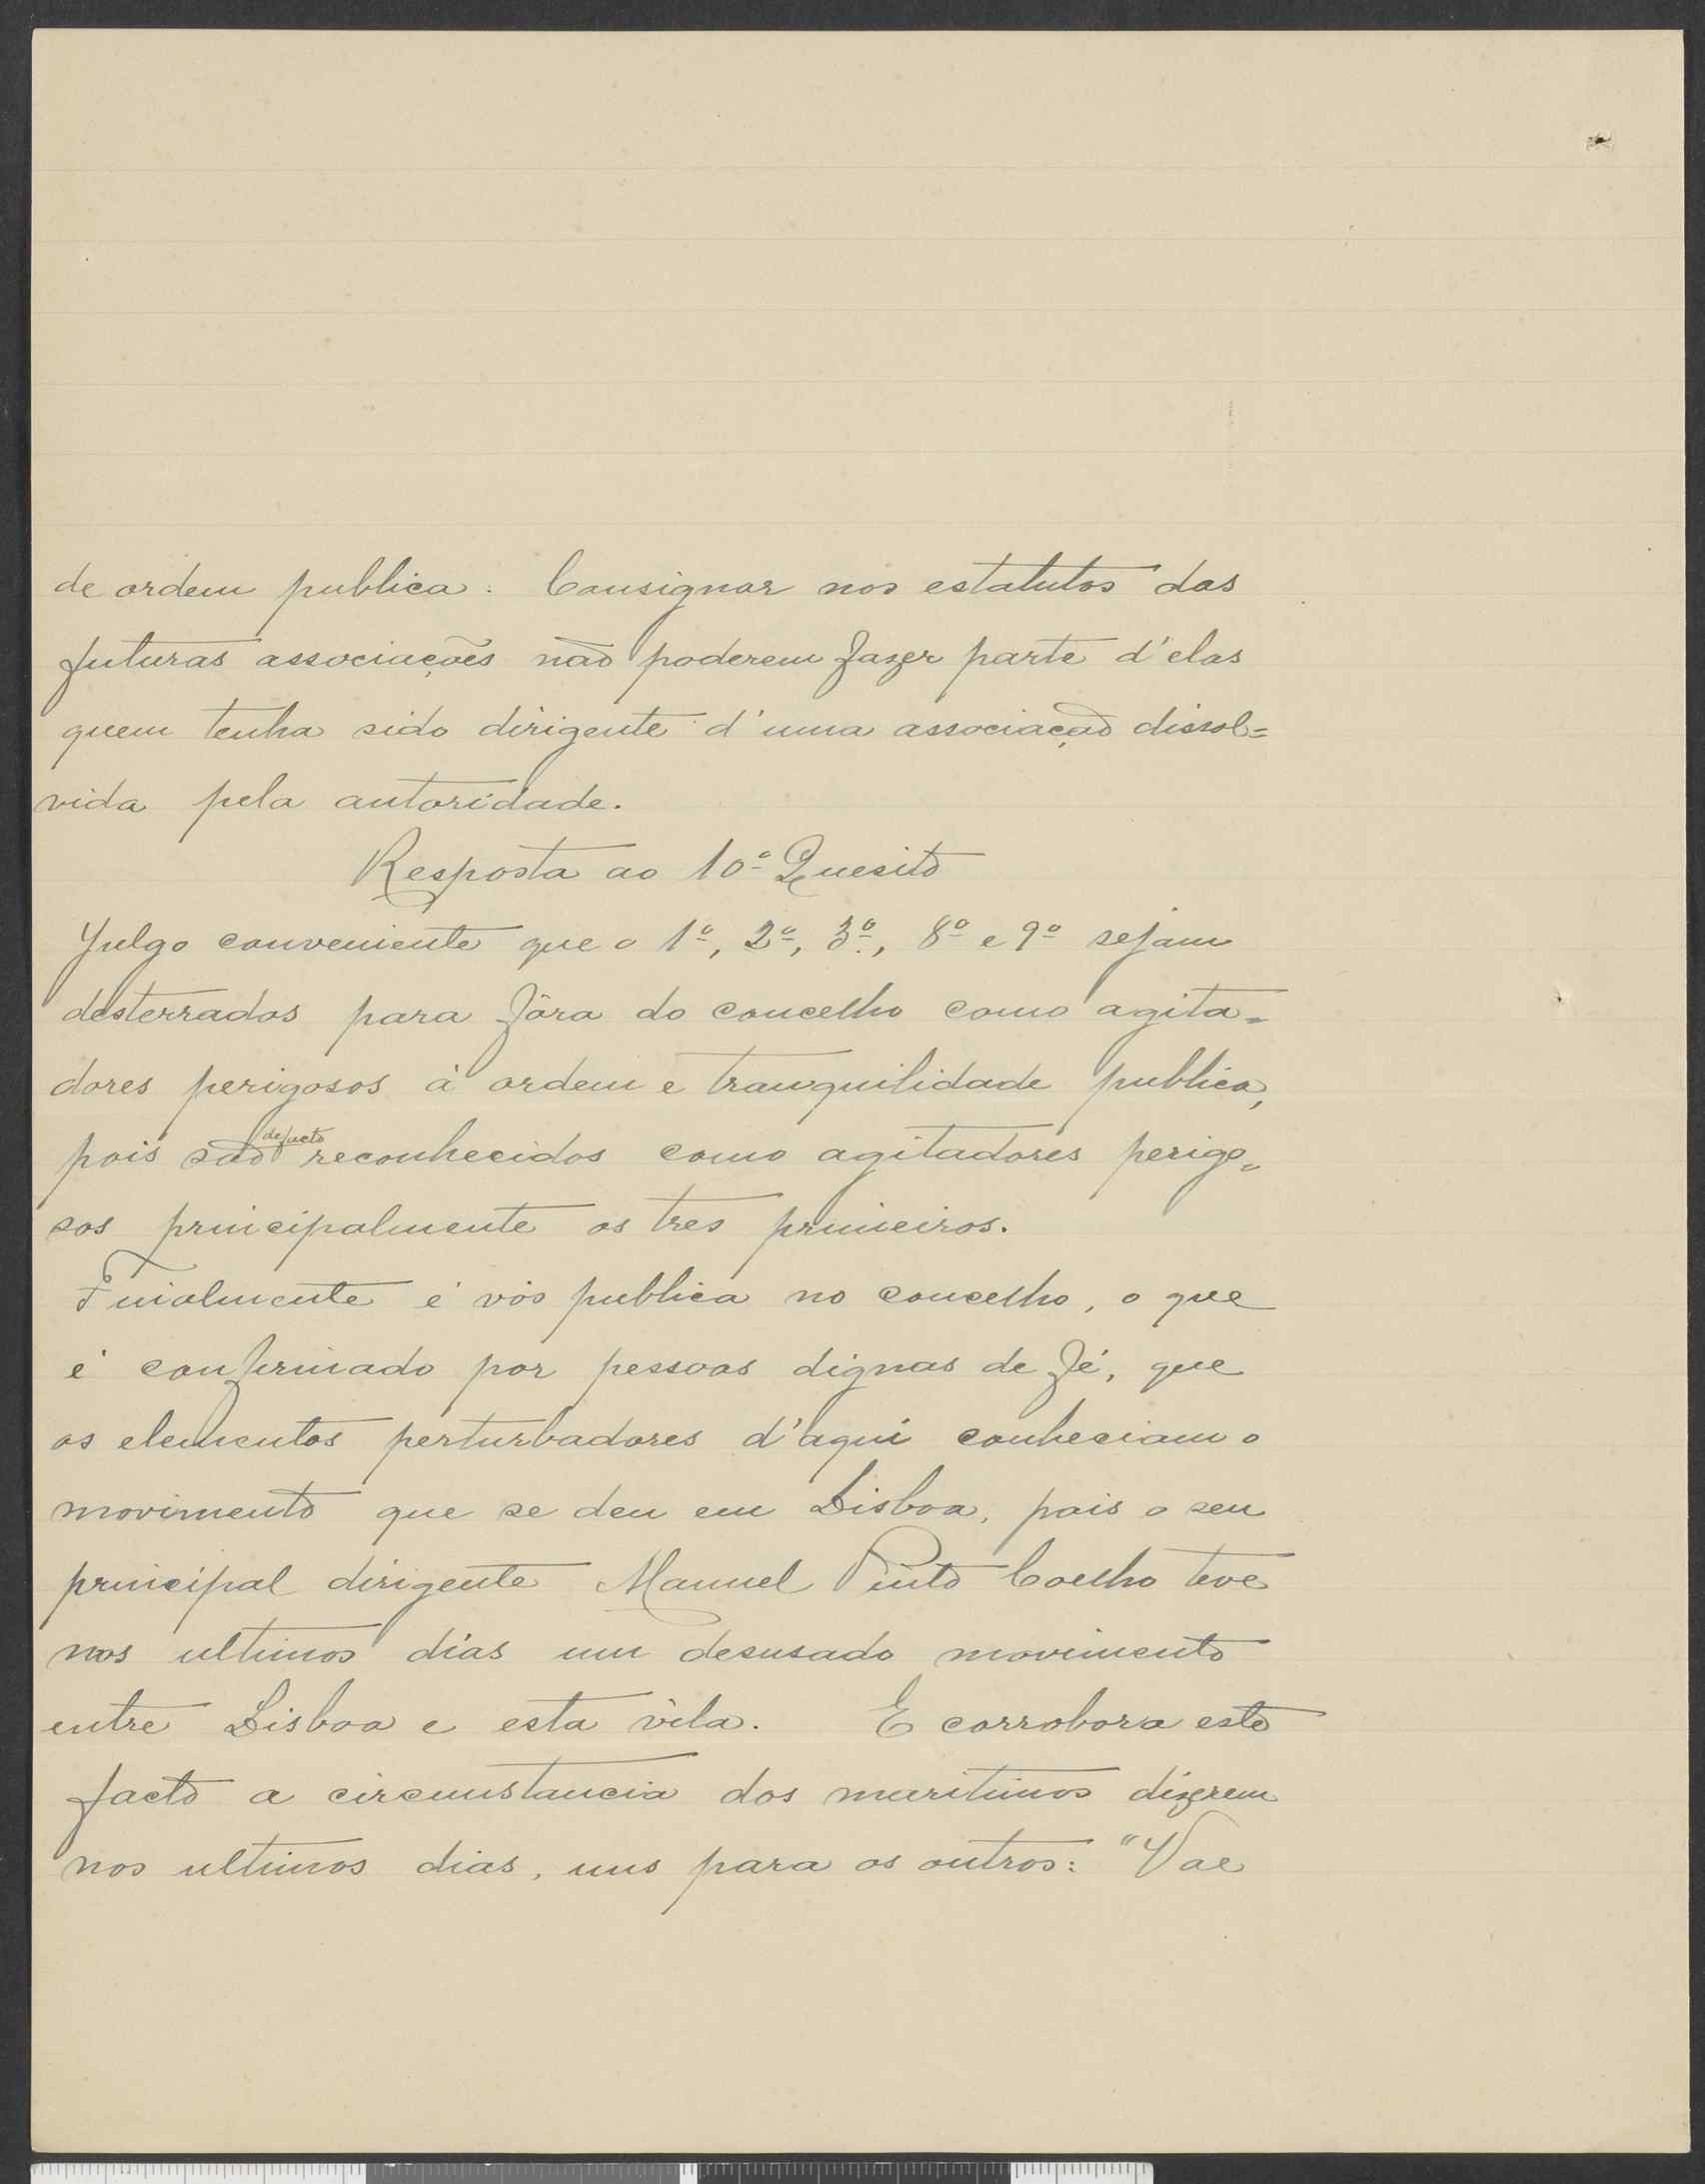 de ordem publica. Consignar nos estatutos das
futuras associações não poderem fazer parte d'elas
quem tenha sido dirigente d'uma associação dissol=
vida pela autoridade.
Resposta ao 10º Quesito
Julgo conveniente que o 1º, 2º, 3º, 8º e 9º sejam
desterrados para fóra do concelho como agita=
dores perigosos á ordem e tranquilidade publica,
pois são de facto reconhecidos como agitadores perigo=
sos principalmente os tres primeiros.
Finalmente é vós publica no concelho, o que
é confirmado por pessoas dignas de fé, que
os elementos perturbadores d'aqui conheciam o
movimento que se deu em Lisboa, pois o seu
principal dirigente Manuel Pinto Coelho teve
nos ultimos dias um desusado movimento
entre Lisboa e esta vila. E corrobora este
facto a circumstancia dos maritimos dizerem
nos ultimos dias, uns para os outros: "Vae